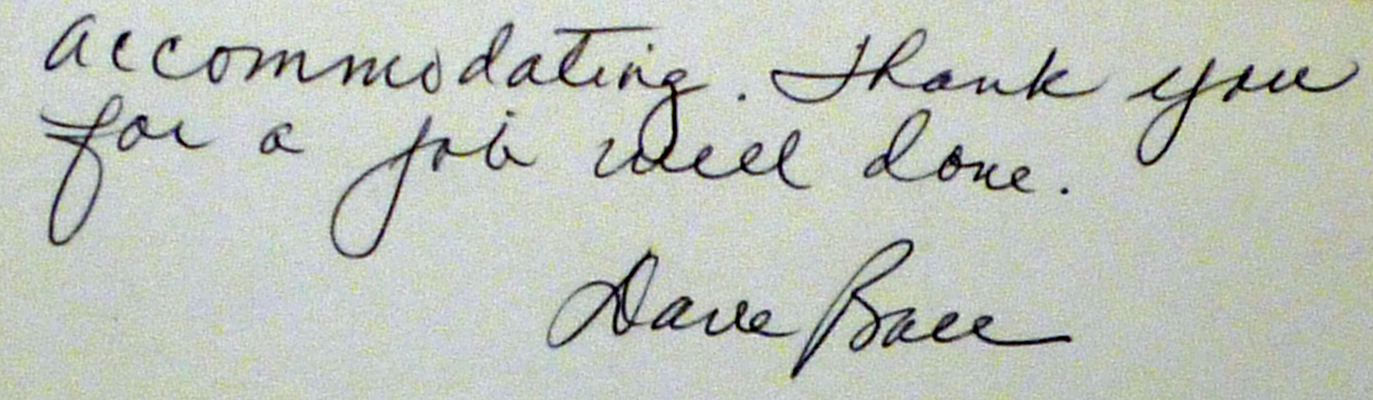 accommodating. Thank you
for a job well done.
Dave Ball